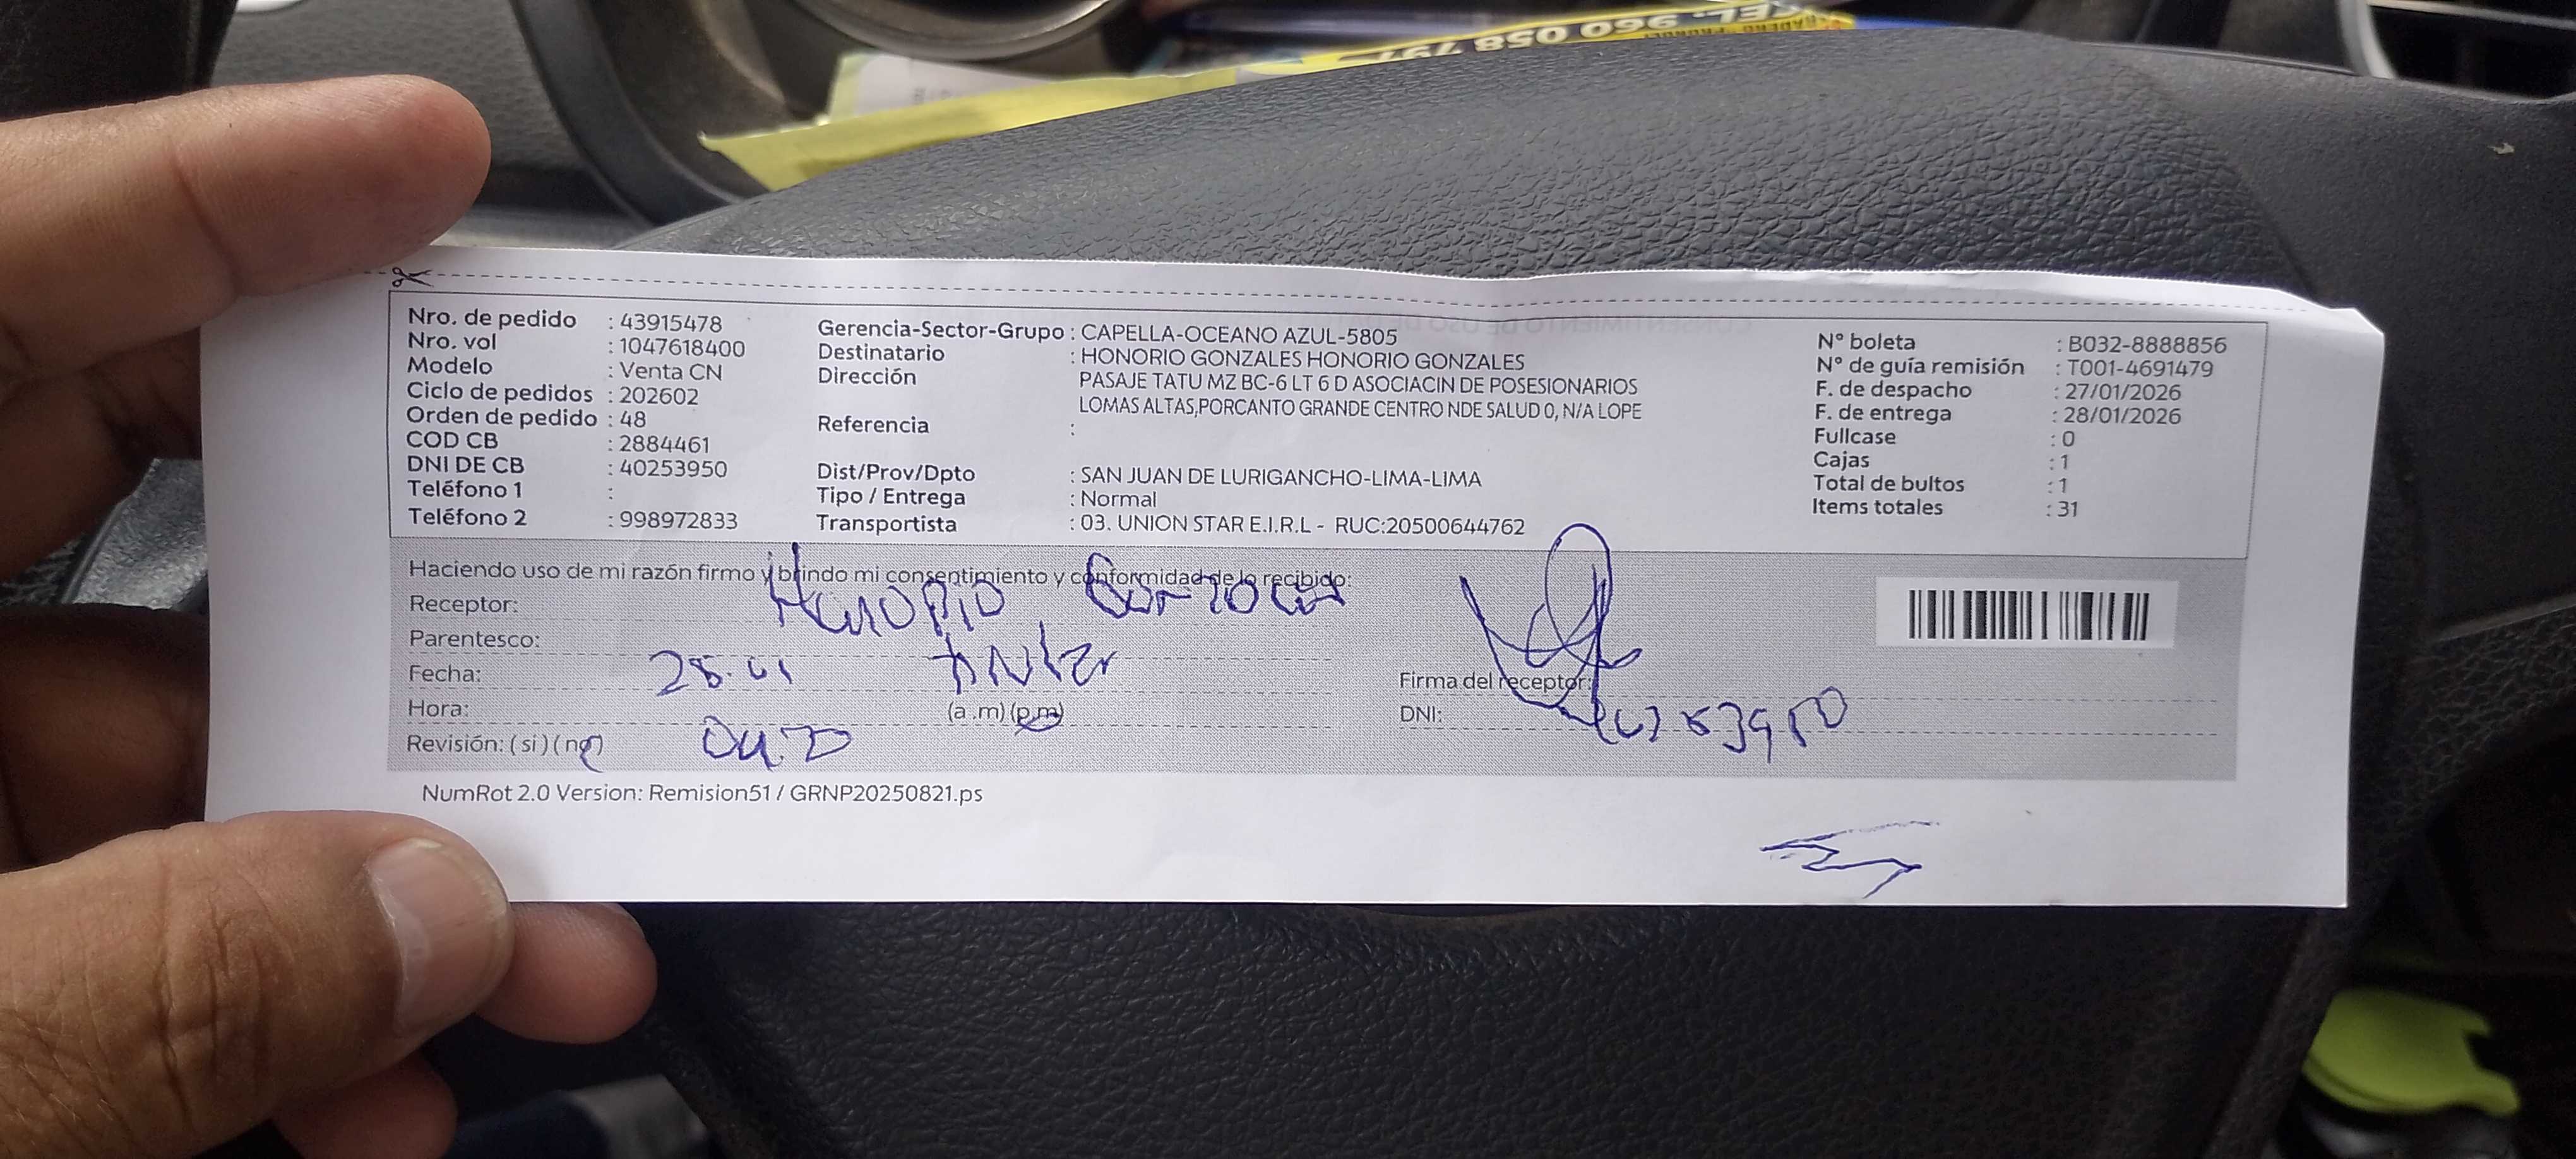 TEL. 960 058 797
Nro. de pedido : 43915478
Nro. vol : 1047618400
Modelo : Venta CN
Ciclo de pedidos : 202602
Orden de pedido : 48
COD CB : 2884461
DNI DE CB : 40253950
Teléfono 1 :
Teléfono 2 : 998972833
Gerencia-Sector-Grupo : CAPELLA-OCEANO AZUL-5805
Destinatario : HONORIO GONZALES HONORIO GONZALES
Dirección PASAJE TATU MZ BC-6 LT 6 D ASOCIACIN DE POSESIONARIOS
LOMAS ALTAS,PORCANTO GRANDE CENTRO NDE SALUD 0, N/A LOPE
Referencia :
Dist/Prov/Dpto : SAN JUAN DE LURIGANCHO-LIMA-LIMA
Tipo / Entrega : Normal
Transportista : 03. UNION STAR E.I.R.L - RUC:20500644762
N° boleta : B032-8888856
N° de guía remisión : T001-4691479
F. de despacho : 27/01/2026
F. de entrega : 28/01/2026
Fullcase : 0
Cajas : 1
Total de bultos : 1
Items totales : 31
Haciendo uso de mi razón firmo y brindo mi consentimiento y conformidad de lo recibido:
Receptor: Honorio Gonzales
Parentesco:
Fecha: 28.01
Hora: (a .m) (p.m)
Revisión: ( si ) ( no)
Firma del receptor:
DNI:
NumRot 2.0 Version: Remision51 / GRNP20250821.ps